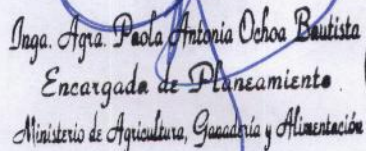 Inga. Agra. Paola Antonia Ochoa Bautista
Encargada de Planeamiento.
Ministerio de Agricultura, Ganadería y Alimentación